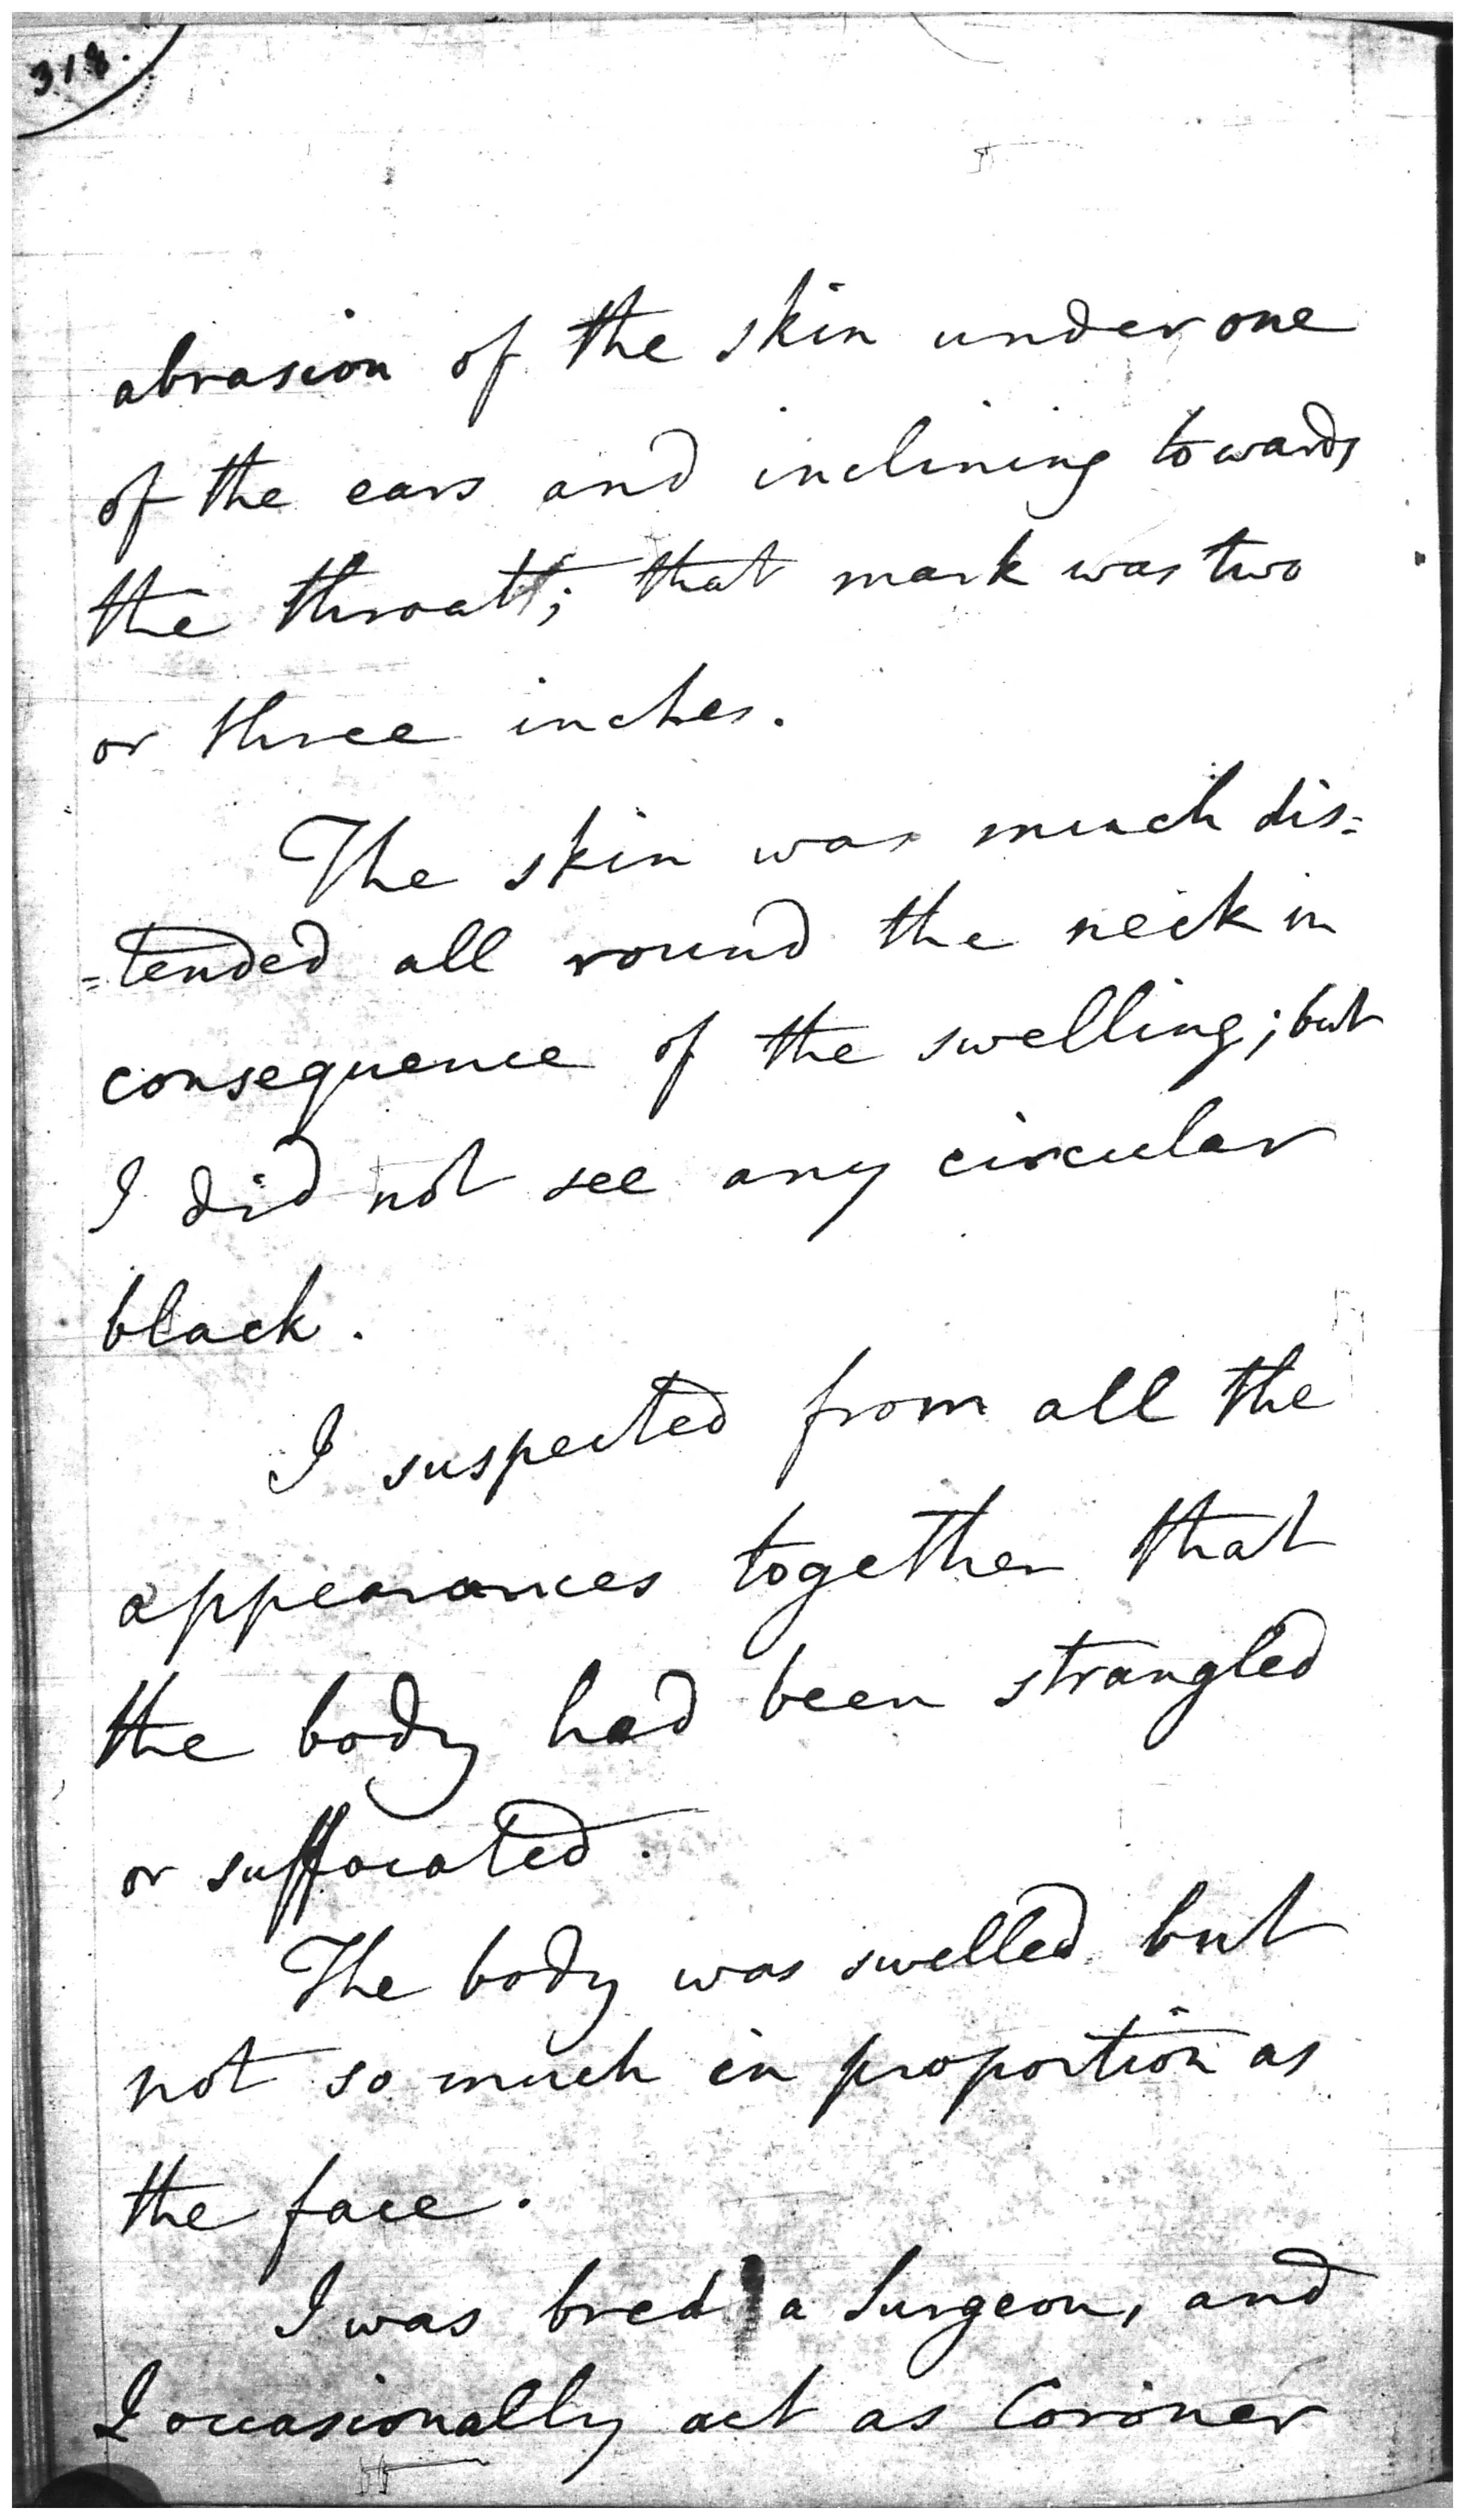 318.
abrasion of the skin under one
of the ears and inclining towards
the throatt; that mark was two
or three inches.
The skin was much dis=
=tended all round the neck in
consequence of the swelling; but
I did not see any circular
black.
I suspected from all the
appearances together that
the body had been strangled
or suffocated.
The body was swelled but
not so much in proportion as
the face.
I was bred a Surgeon, and
I occasionally act as Coroner